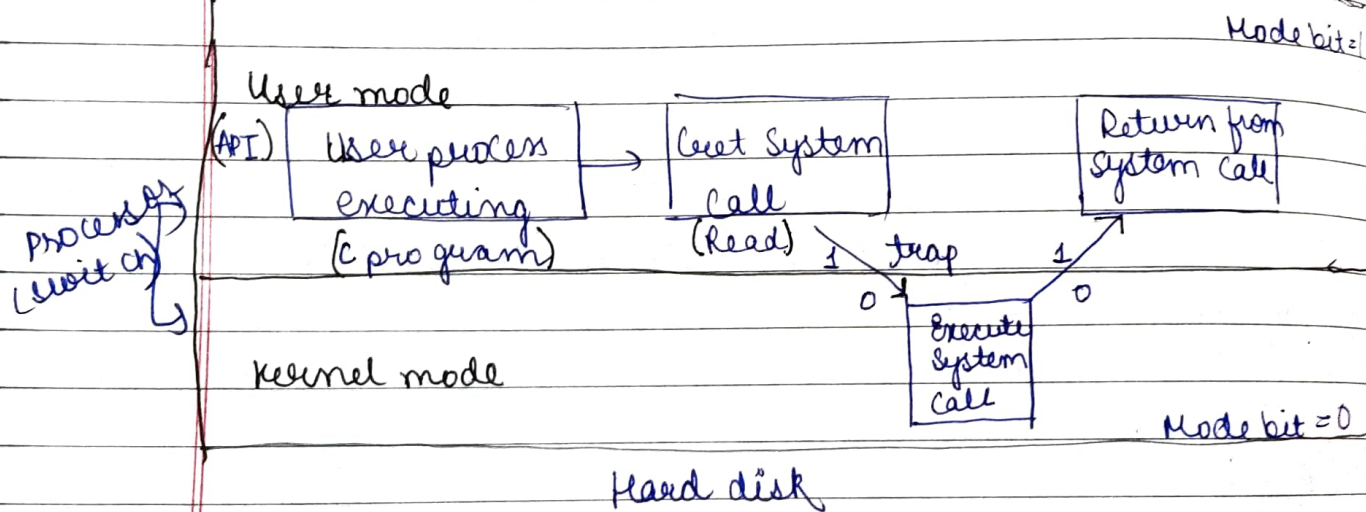 Mode bit=1
User mode
(API)
User process
executing
(C program)
Get System
Call
(Read)
Return from
System Call
processor
(switch)
1
trap
1
0
0
Execute
System
Call
Kernel mode
Mode bit = 0
Hard disk